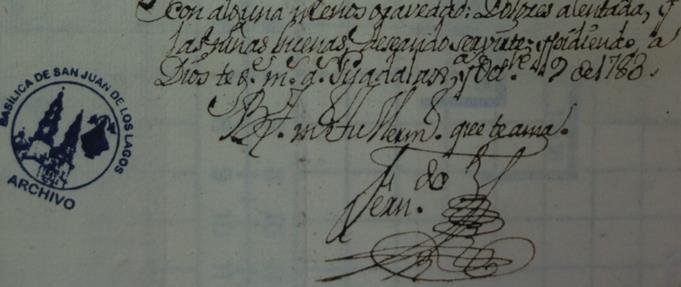 con alguna menos gravedad: Dolores alentada, y
las niñas buenas, deseando servirte, y pidiendo a
Dios te g.^e m.^s a.^s Guadalax.^a y Oct.^re 9 de 1783.
tu Herm.^o que te ama.
Fern.^do
BASILICA DE SAN JUAN DE LOS LAGOS
ARCHIVO